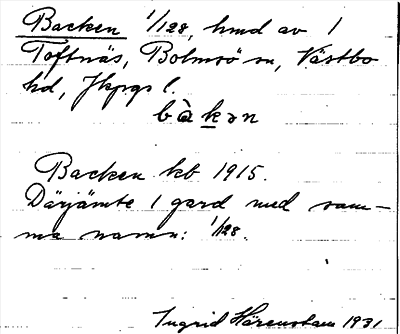 Backen 1/128, hmd av 1
Toftnäs, Bolmsö sn, Västbo
hd, Jkpgs l.
bàkən
Backen kb 1915.
Därjämte 1 gård med sam-
ma namn: 1/128.
Ingrid Härenstam 1931